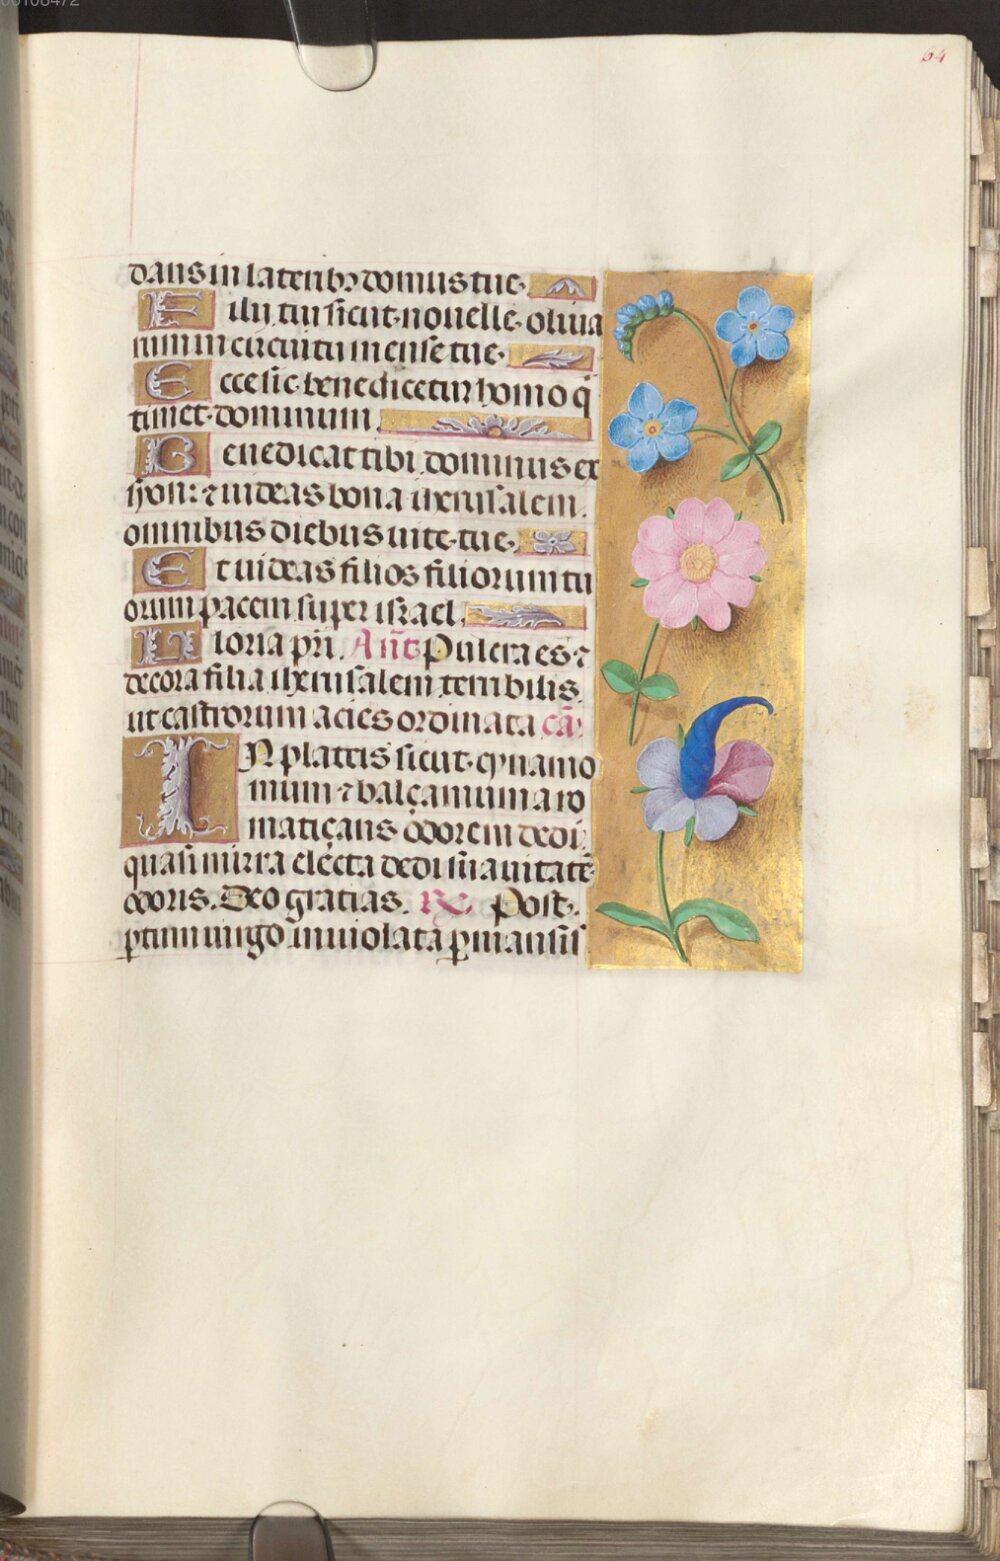 00108472
64
dans in laterib; domus tue.
Filij tui sicut nouelle oliua
rum in circuitu mense tue.
Ecce sic benedicetur homo q̄
timet dominum.
Benedicat tibi dominus ex
syon: ⁊ uideas bona iherusalem.
omnibus diebus uite tue.
Et uideas filios filiorum tu
orum pacem super israel.
Gloria pr̄i. Ant̄ Pulcra es ⁊
decora filia iherusalem terribilis
ut castrorum acies ordinata cā
IN plateis sicut cynamo
mum ⁊ balçamum aro
matiçans odorem dedi:
quasi mirra electa dedi suauitatē
odoris. Deo gratias. R. Post
ptum uirgo inuiolata pmansis